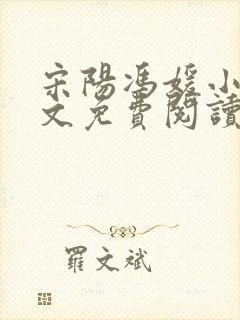 宋陽馮媛小
文免費閱讀
羅文斌